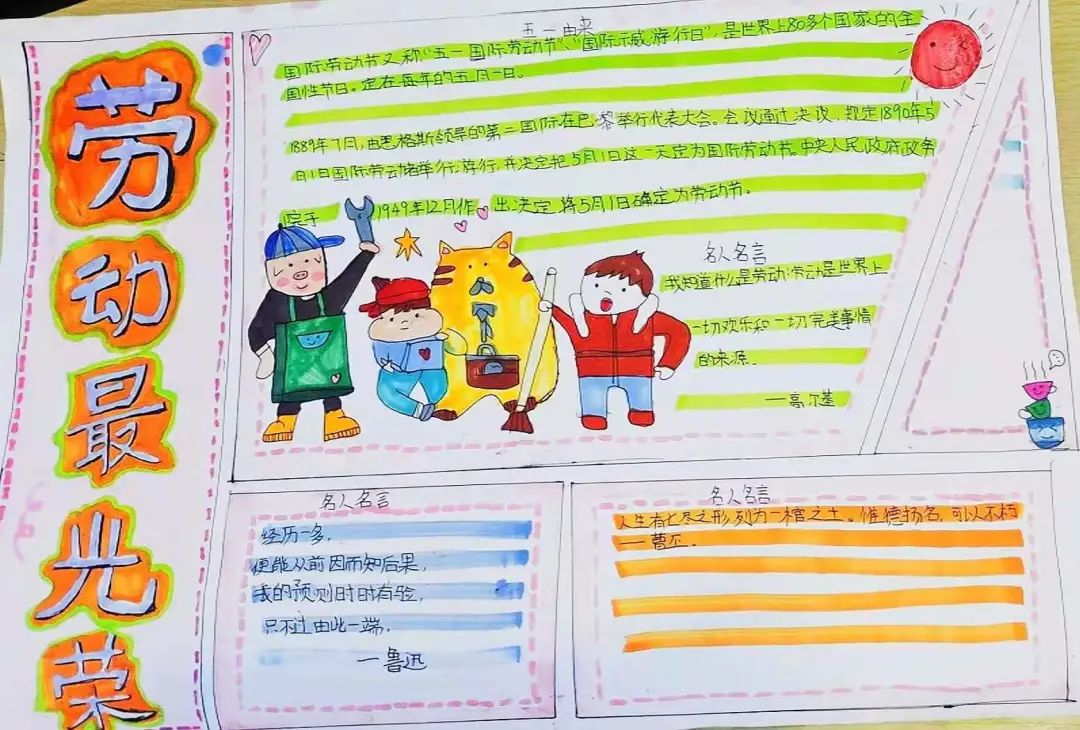 劳动最光荣
五一由来
国际劳动节又称“五一国际劳动节”、“国际示威游行日”,是世界上80多个国家的全
国性节日。定在每年的五月一日。
1889年7月,由恩格斯领导的第二国际在巴黎举行代表大会。会议通过决议,规定1890年5
月1日国际劳动者举行游行,并决定把5月1日这一天定为国际劳动节。中央人民政府政务
院于1949年12月作出决定,将5月1日确定为劳动节。
名人名言
我知道什么是劳动:劳动是世界上
一切欢乐和一切完美事情
的来源.
—高尔基
名人名言
经历一多.
便能从前因而知后果,
我的预测时时有验,
只不过由此一端.
—鲁迅
名人名言
人生有七尽之形,列为一棺之土。惟德扬名,可以不朽
—曹丕.